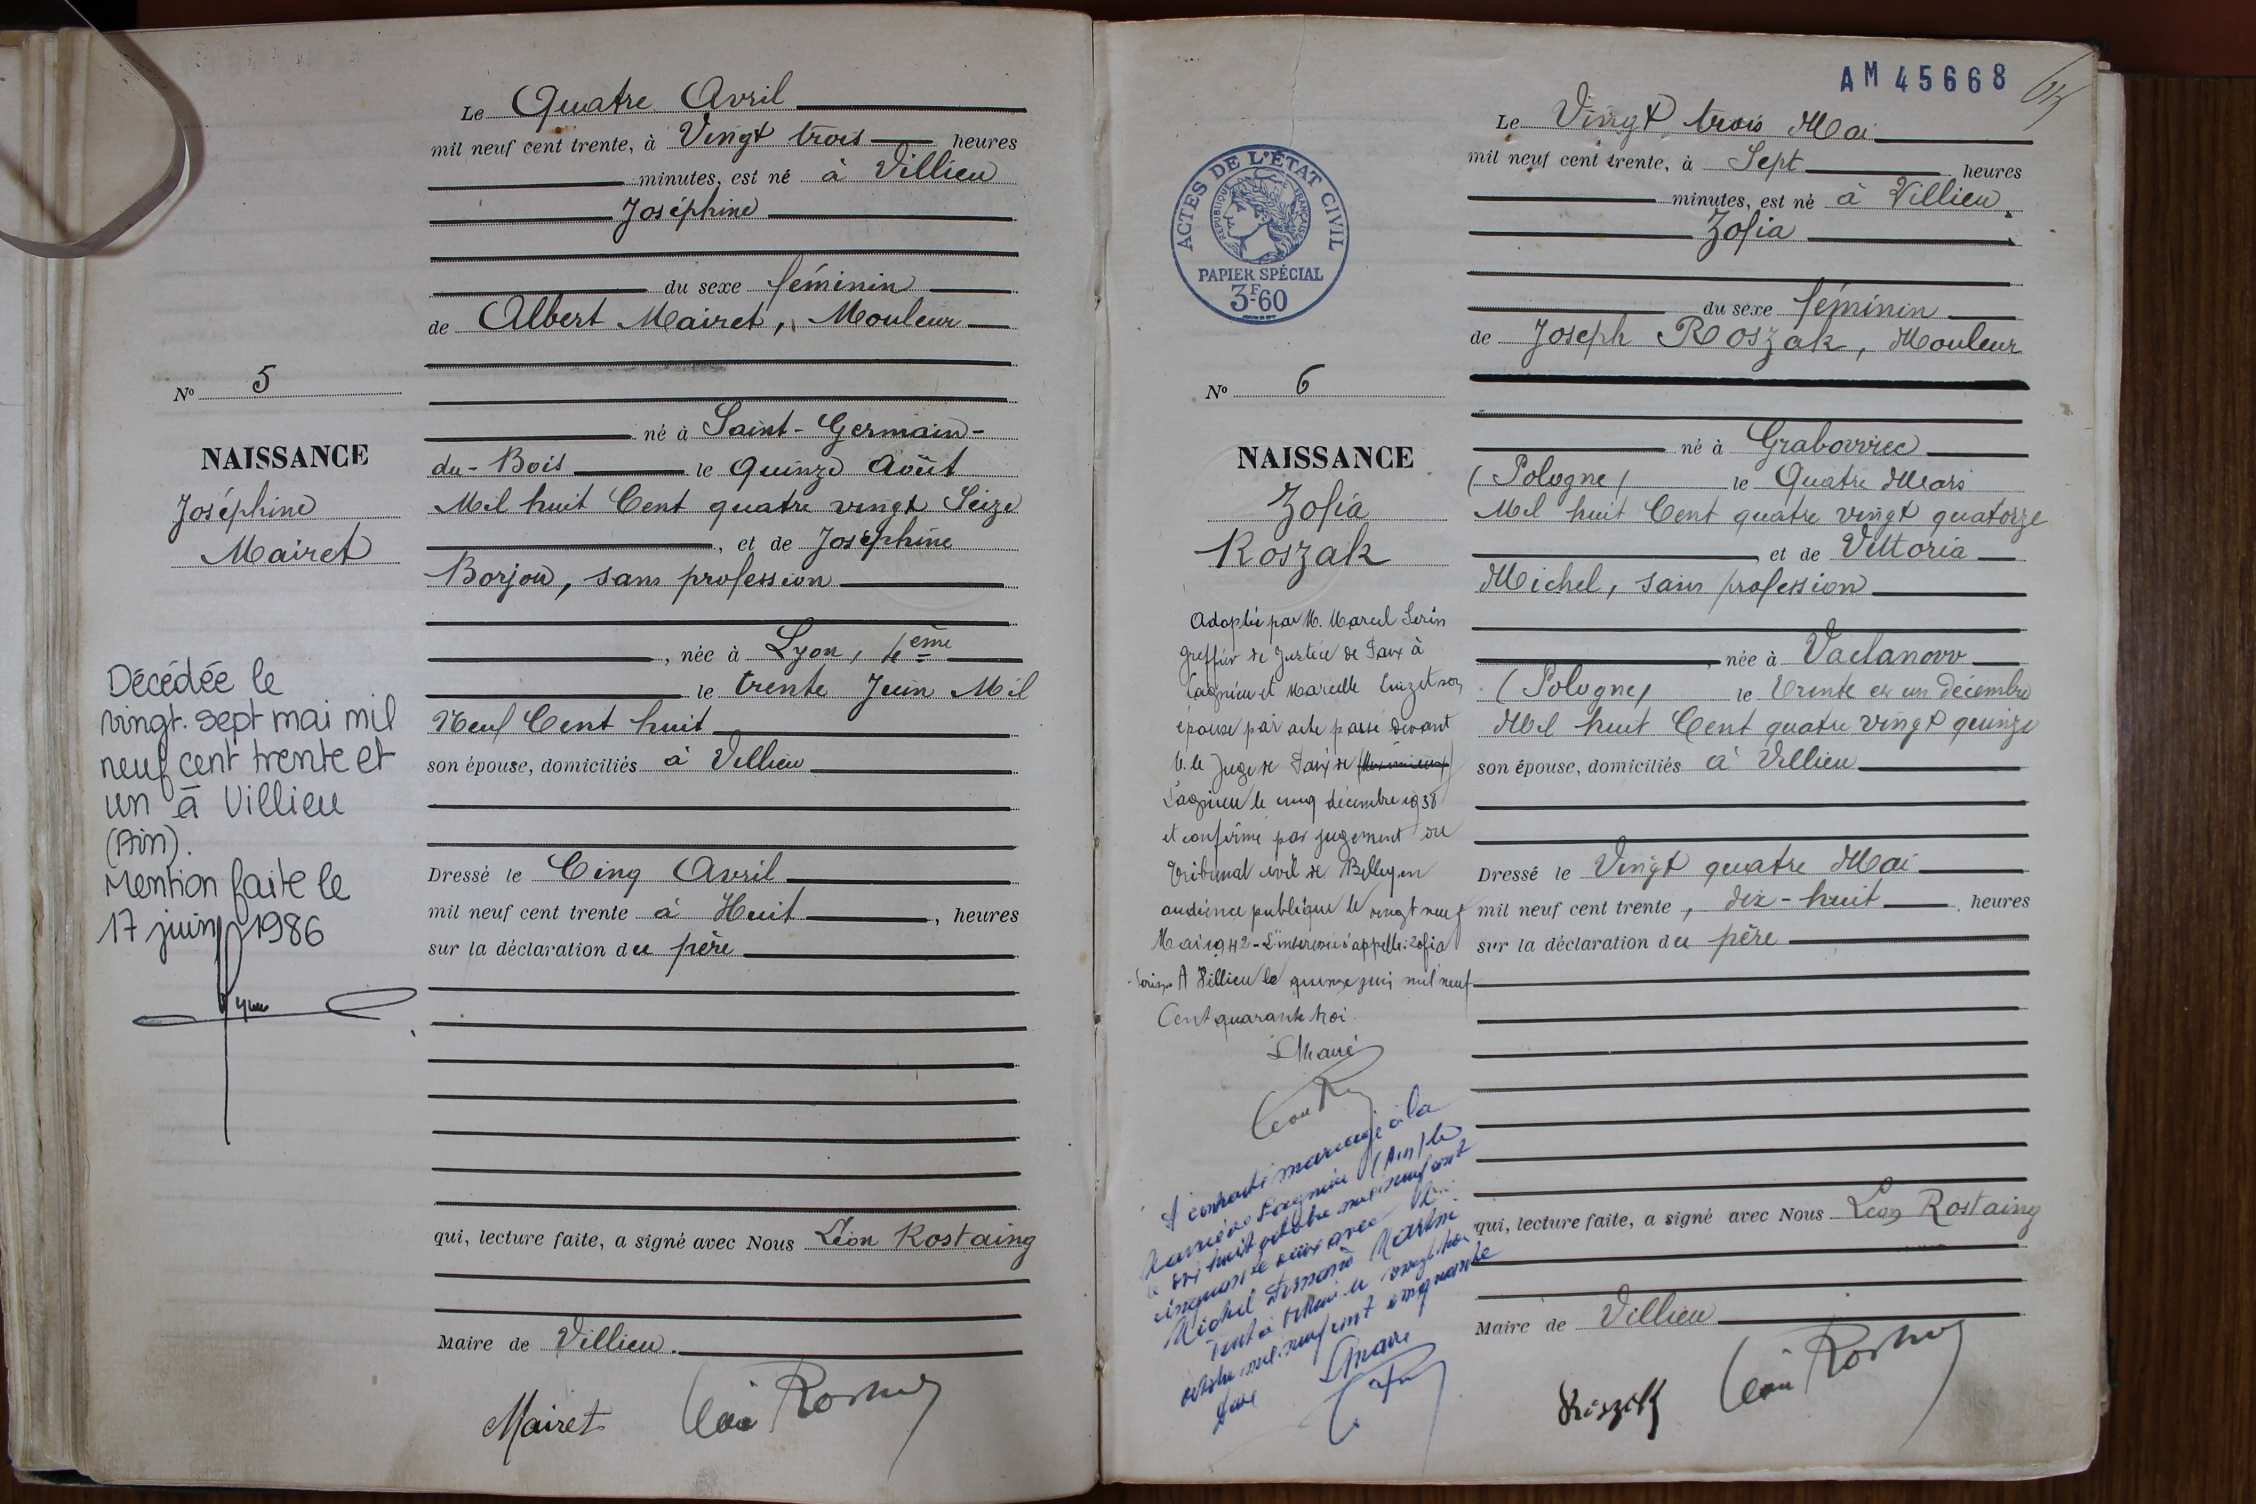 Le Quatre Avril
mil neuf cent trente, à Vingt trois heures
minutes, est né à Villieu
Joséphine
du sexe féminin
de Albert Mairet, Mouleur
né à Saint-Germain-
du-Bois le quinze Août
Mil huit Cent quatre vingt Seize
, et de Joséphine
Borjon, sans profession
, née à Lyon, 4ème
le trente Juin Mil
Neuf Cent huit
son épouse, domiciliés à Villieu
Dressé le Cinq Avril
mil neuf cent trente à Huit, heures
sur la déclaration du père
qui, lecture faite, a signé avec Nous Léon Rostaing
Maire de Villieu.
Mairet
No 5
NAISSANCE
Joséphine
Mairet
Décédée le
vingt-sept mai mil
neuf cent trente et
un à Villieu
(Ain).
Mention faite le
17 juin 1986
AM 45668
Le Vingt trois Mai
mil neuf cent trente, à Sept heures
minutes, est né à Villieu
Zofia
du sexe féminin
de Joseph Roszak, Mouleur
né à Grabowiec
(Pologne) le Quatre Mars
Mil huit Cent quatre vingt quatorze
et de Vittoria
Michel, sans profession
née à Vaclanow
(Pologne) le trente et un décembre
Mil huit Cent quatre vingt quinze
son épouse, domiciliés à Villieu
Dressé le Vingt quatre Mai
mil neuf cent trente, dix-huit heures
sur la déclaration du père
qui, lecture faite, a signé avec Nous Léon Rostaing
Maire de Villieu
ACTES DE L'ÉTAT CIVIL
RÉPUBLIQUE FRANÇAISE
PAPIER SPÉCIAL
3F60
No 6
NAISSANCE
Zofia
Roszak
Adoptée par M. Marcel Serin
greffier de Justice de Paix à
Lagnieu et Marcelle son
épouse par acte passé devant
M. le Juge de Paix de
Lagnieu le cinq décembre 1938
et confirmé par jugement du
Tribunal civil de Belley en
audience publique le vingt neuf
Mai 1942 - L'intéressée s'appelle: Zofia
A Villieu le quinze juin mil neuf
Cent quarante
Le Maire
A contracté mariage à la
Lagnieu (Ain) le
dix huit octobre mil neuf cent
cinquante deux avec
Michel Martin
octobre mil neuf cent cinquante
deux Le Maire